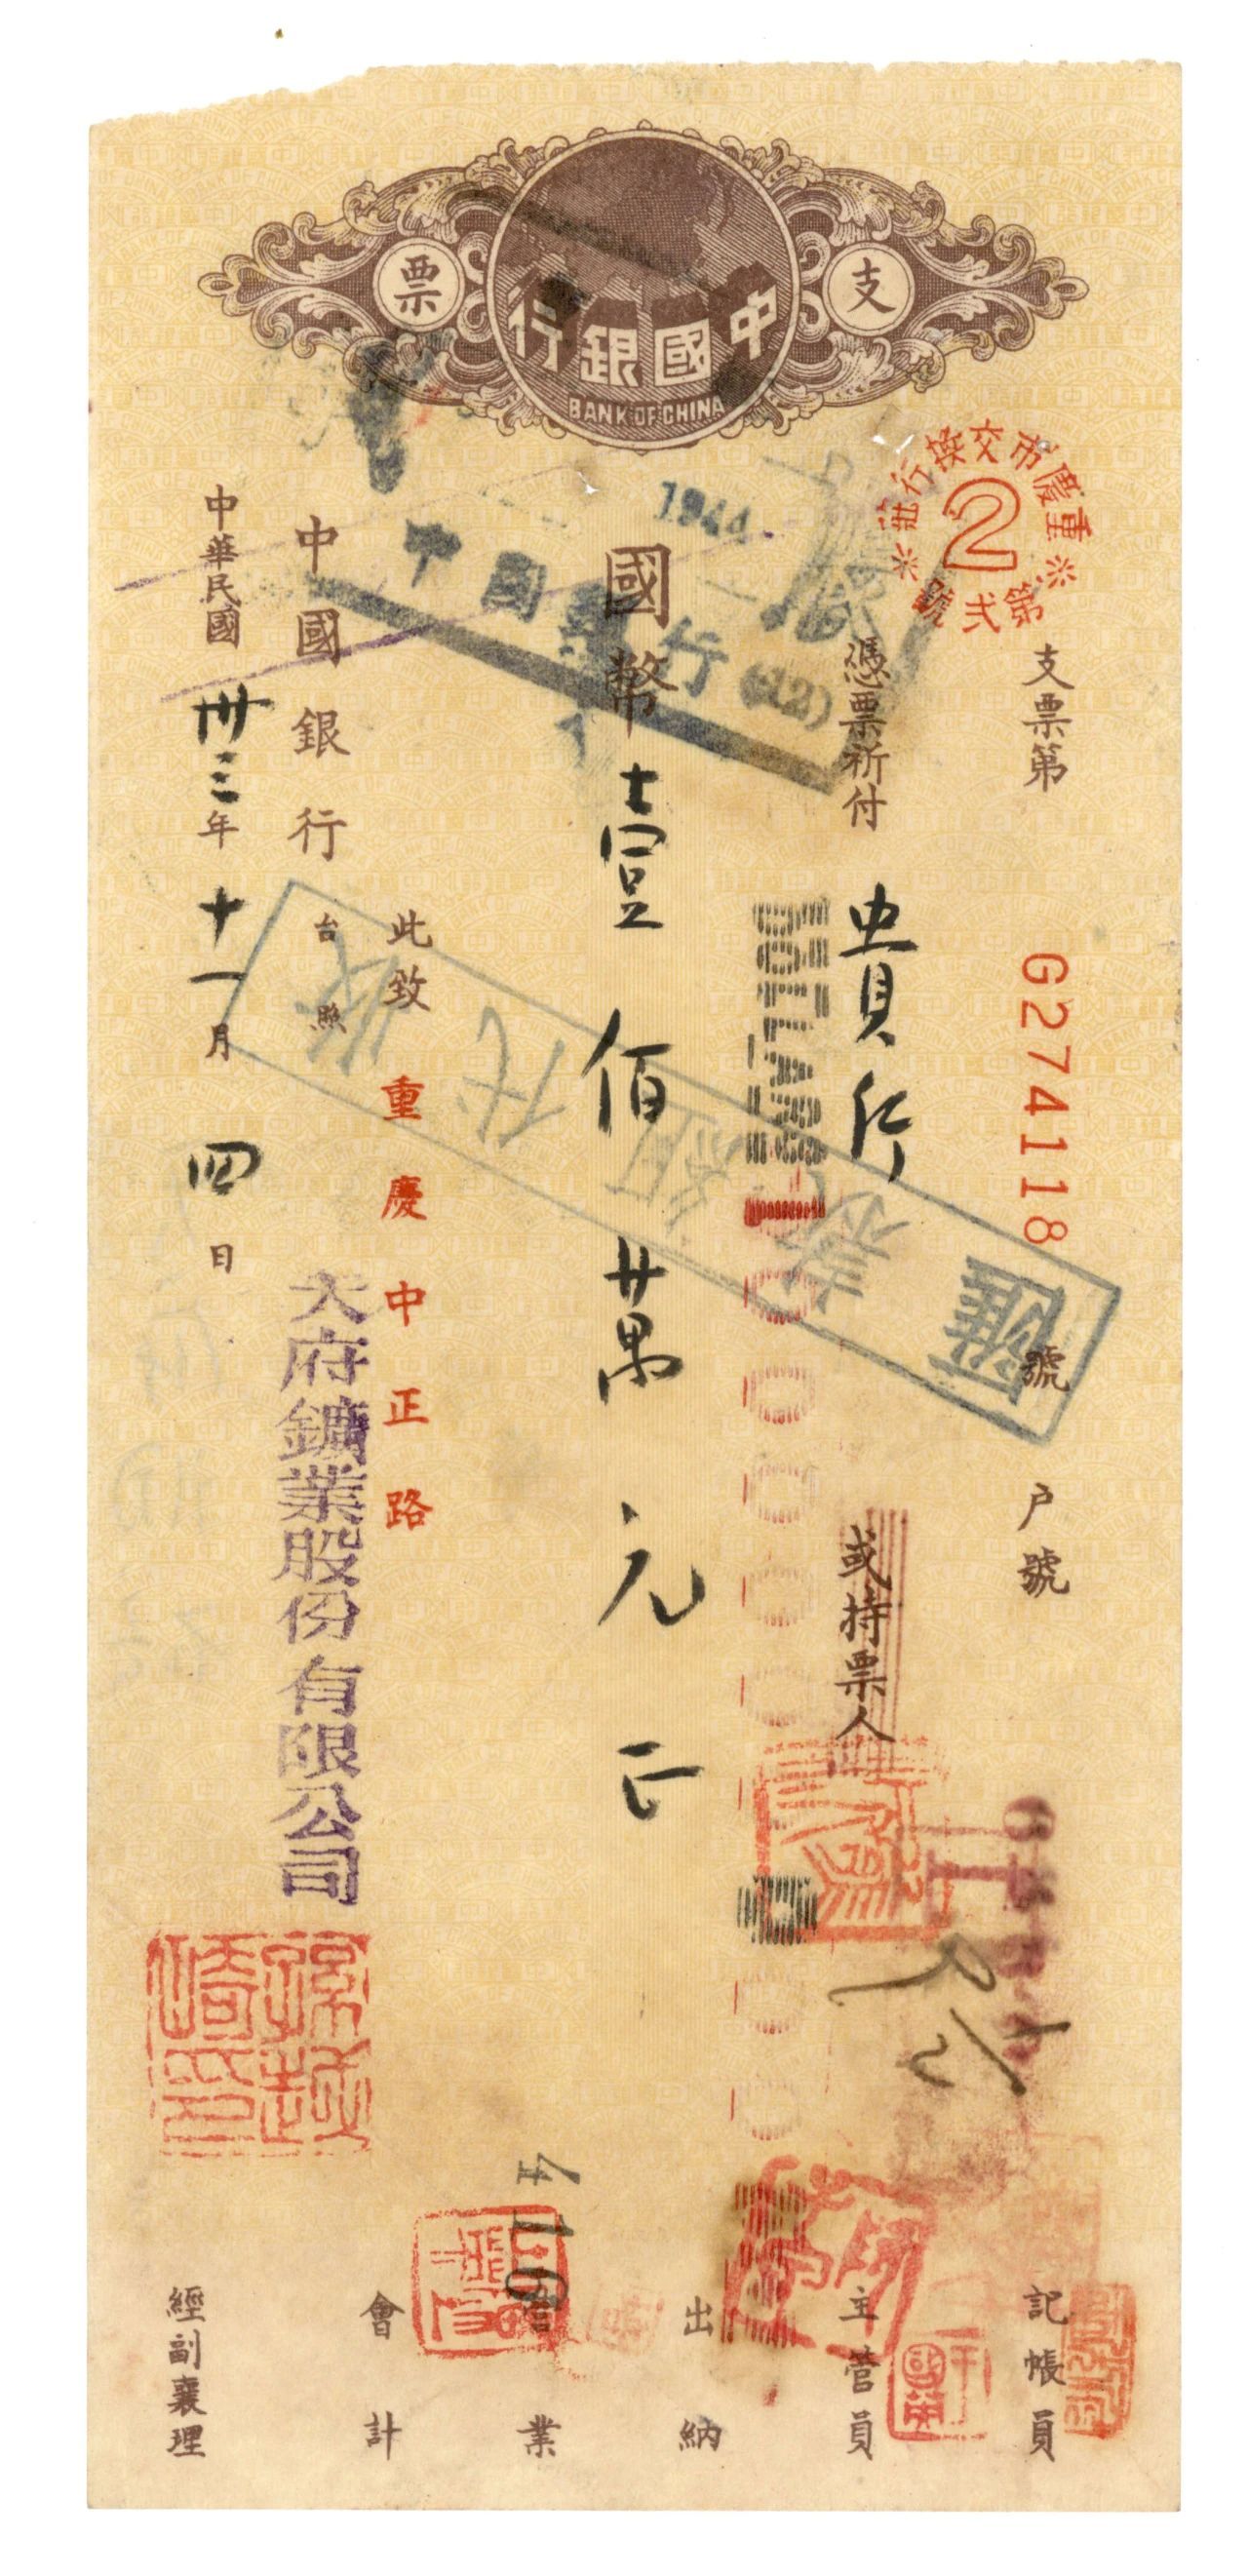 支票
中國銀行
BANK OF CHINA
重慶市交換行莊
2
第弍號
支票第 G274118 號 户號
憑票祈付 貴行 或持票人
DOLLARS
國幣 壹佰廿萬元正
1944
中國銀行 (12)
此致 重慶中正路
中國銀行 台照
天府鑛業股份有限公司
中華民國 卅三年 十一月 四日
孫越崎印
記帳員
主管員
出納
營業
會計
經副襄理